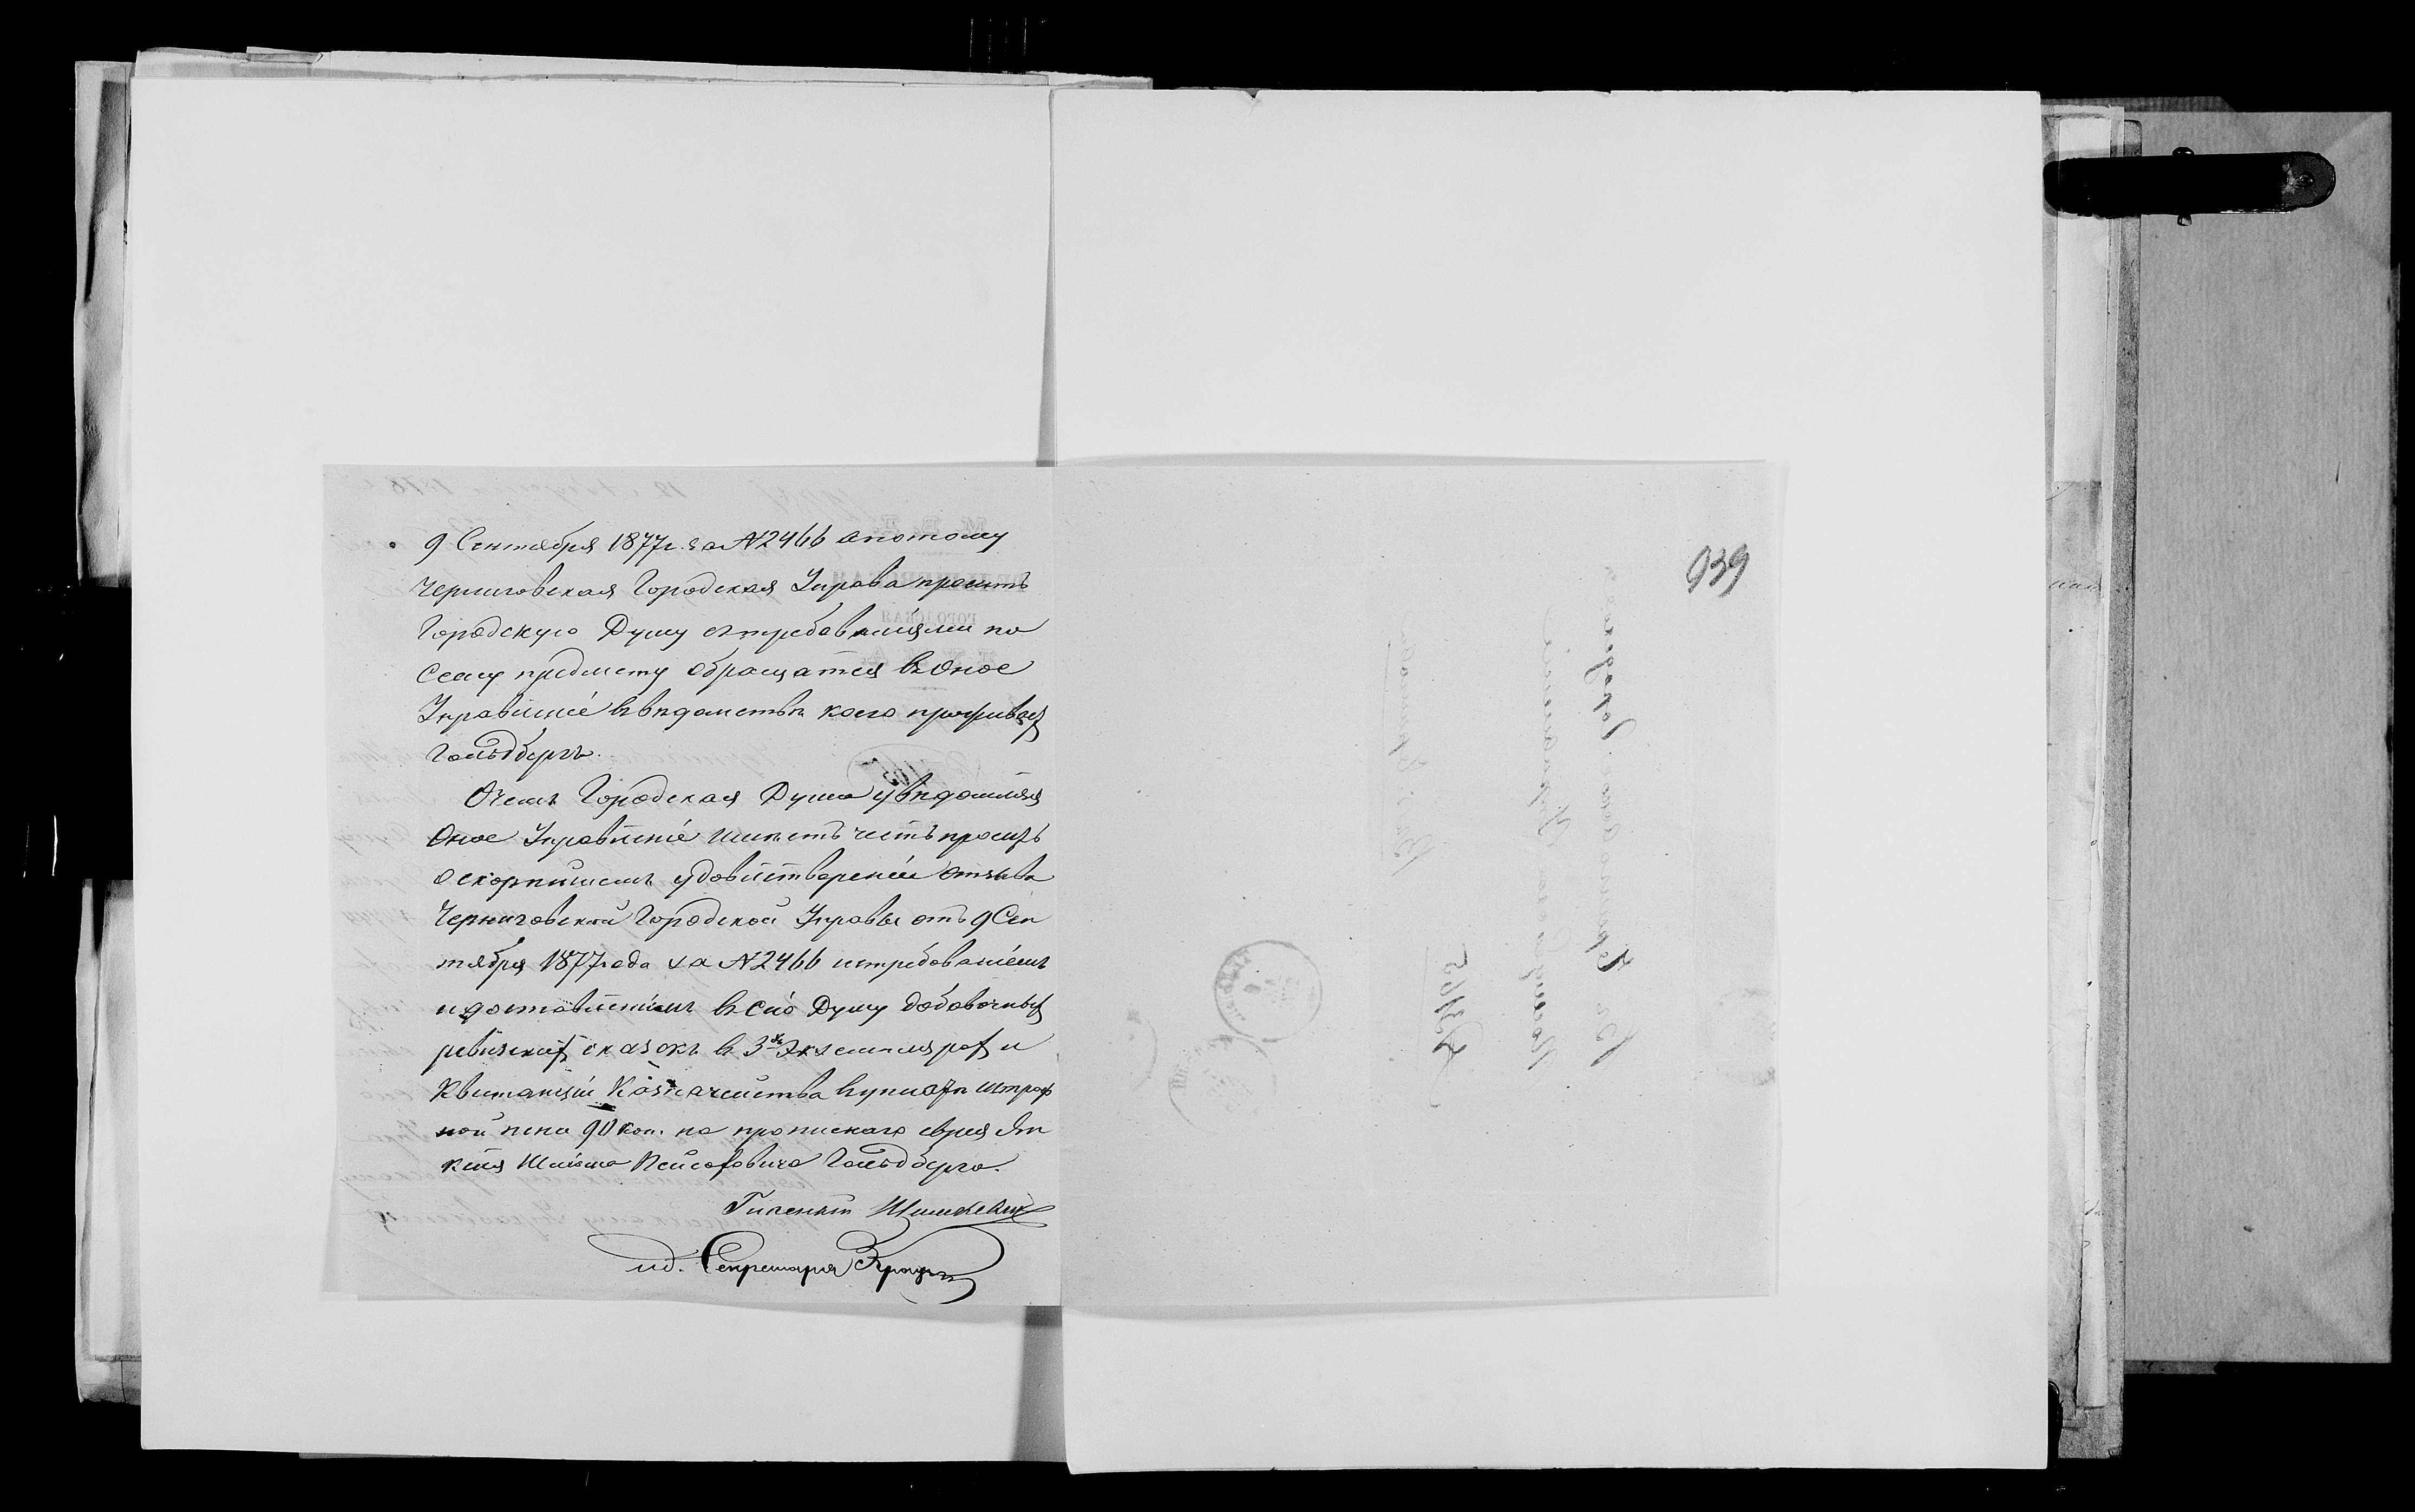 9 Сентября 1877 г. за №2466 а потому
Черниговская Городская Управа проситъ
Городскую Думу с требованіями по
сему предмету обращатся въ оное
Управленіе въ вѣдомствѣ коего проживает
Гольдбергъ.
О чемъ Городская Дума увѣдомляя
Оное Управленіе имѣетъ честь просить
о скорѣйшемъ удовлетвореніи отзыва
Черниговской Городской Управы отъ 9 Сен
тября 1877 года за №2466 истребованіемъ
и доставленіемъ въ сию Думу добавочныхъ
ревизских сказокъ въ 3хъ Экземплярах и
Квитанціи Казначейства въ уплатѣ штраф
ной пени 90 коп. на прописнаго еврея
Пейсаховича Гольдберга.
и д. Секретаря
939